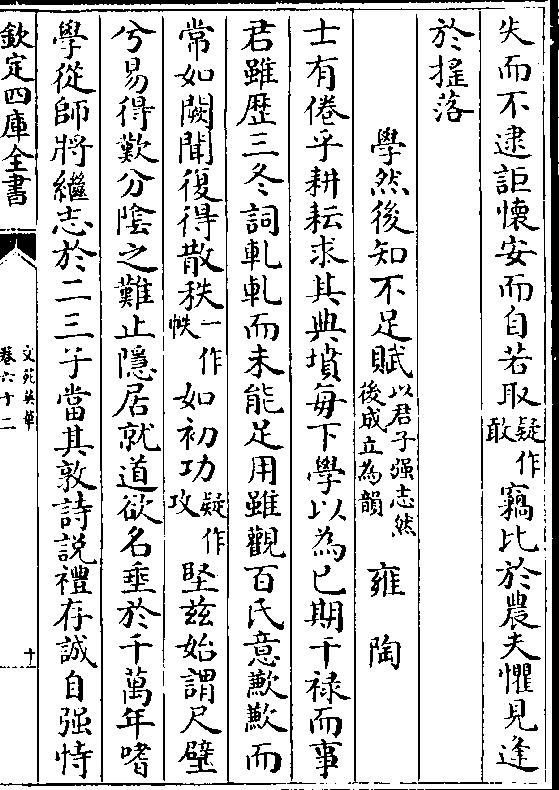 失而不逮詎懷安而自若取疑作敢竊比於農夫懼見逢
於搖落
學然後知不足賦以君子强志然後成立為韻 雍陶
士有倦乎耕耘求其典墳每下學以為已期干禄而事
君雖歴三冬詞軋軋而未能足用雖觀百氏意歉歉而
常如闕聞復得散秩一作帙如初功疑作攻堅兹始謂尺璧
兮易得歎分陰之難止隱居就道欲名垂於千萬年嗜
學從師將繼志於二三子當其敦詩説禮存誠自强恃
欽定四庫全書
文苑英華
卷六十二
十